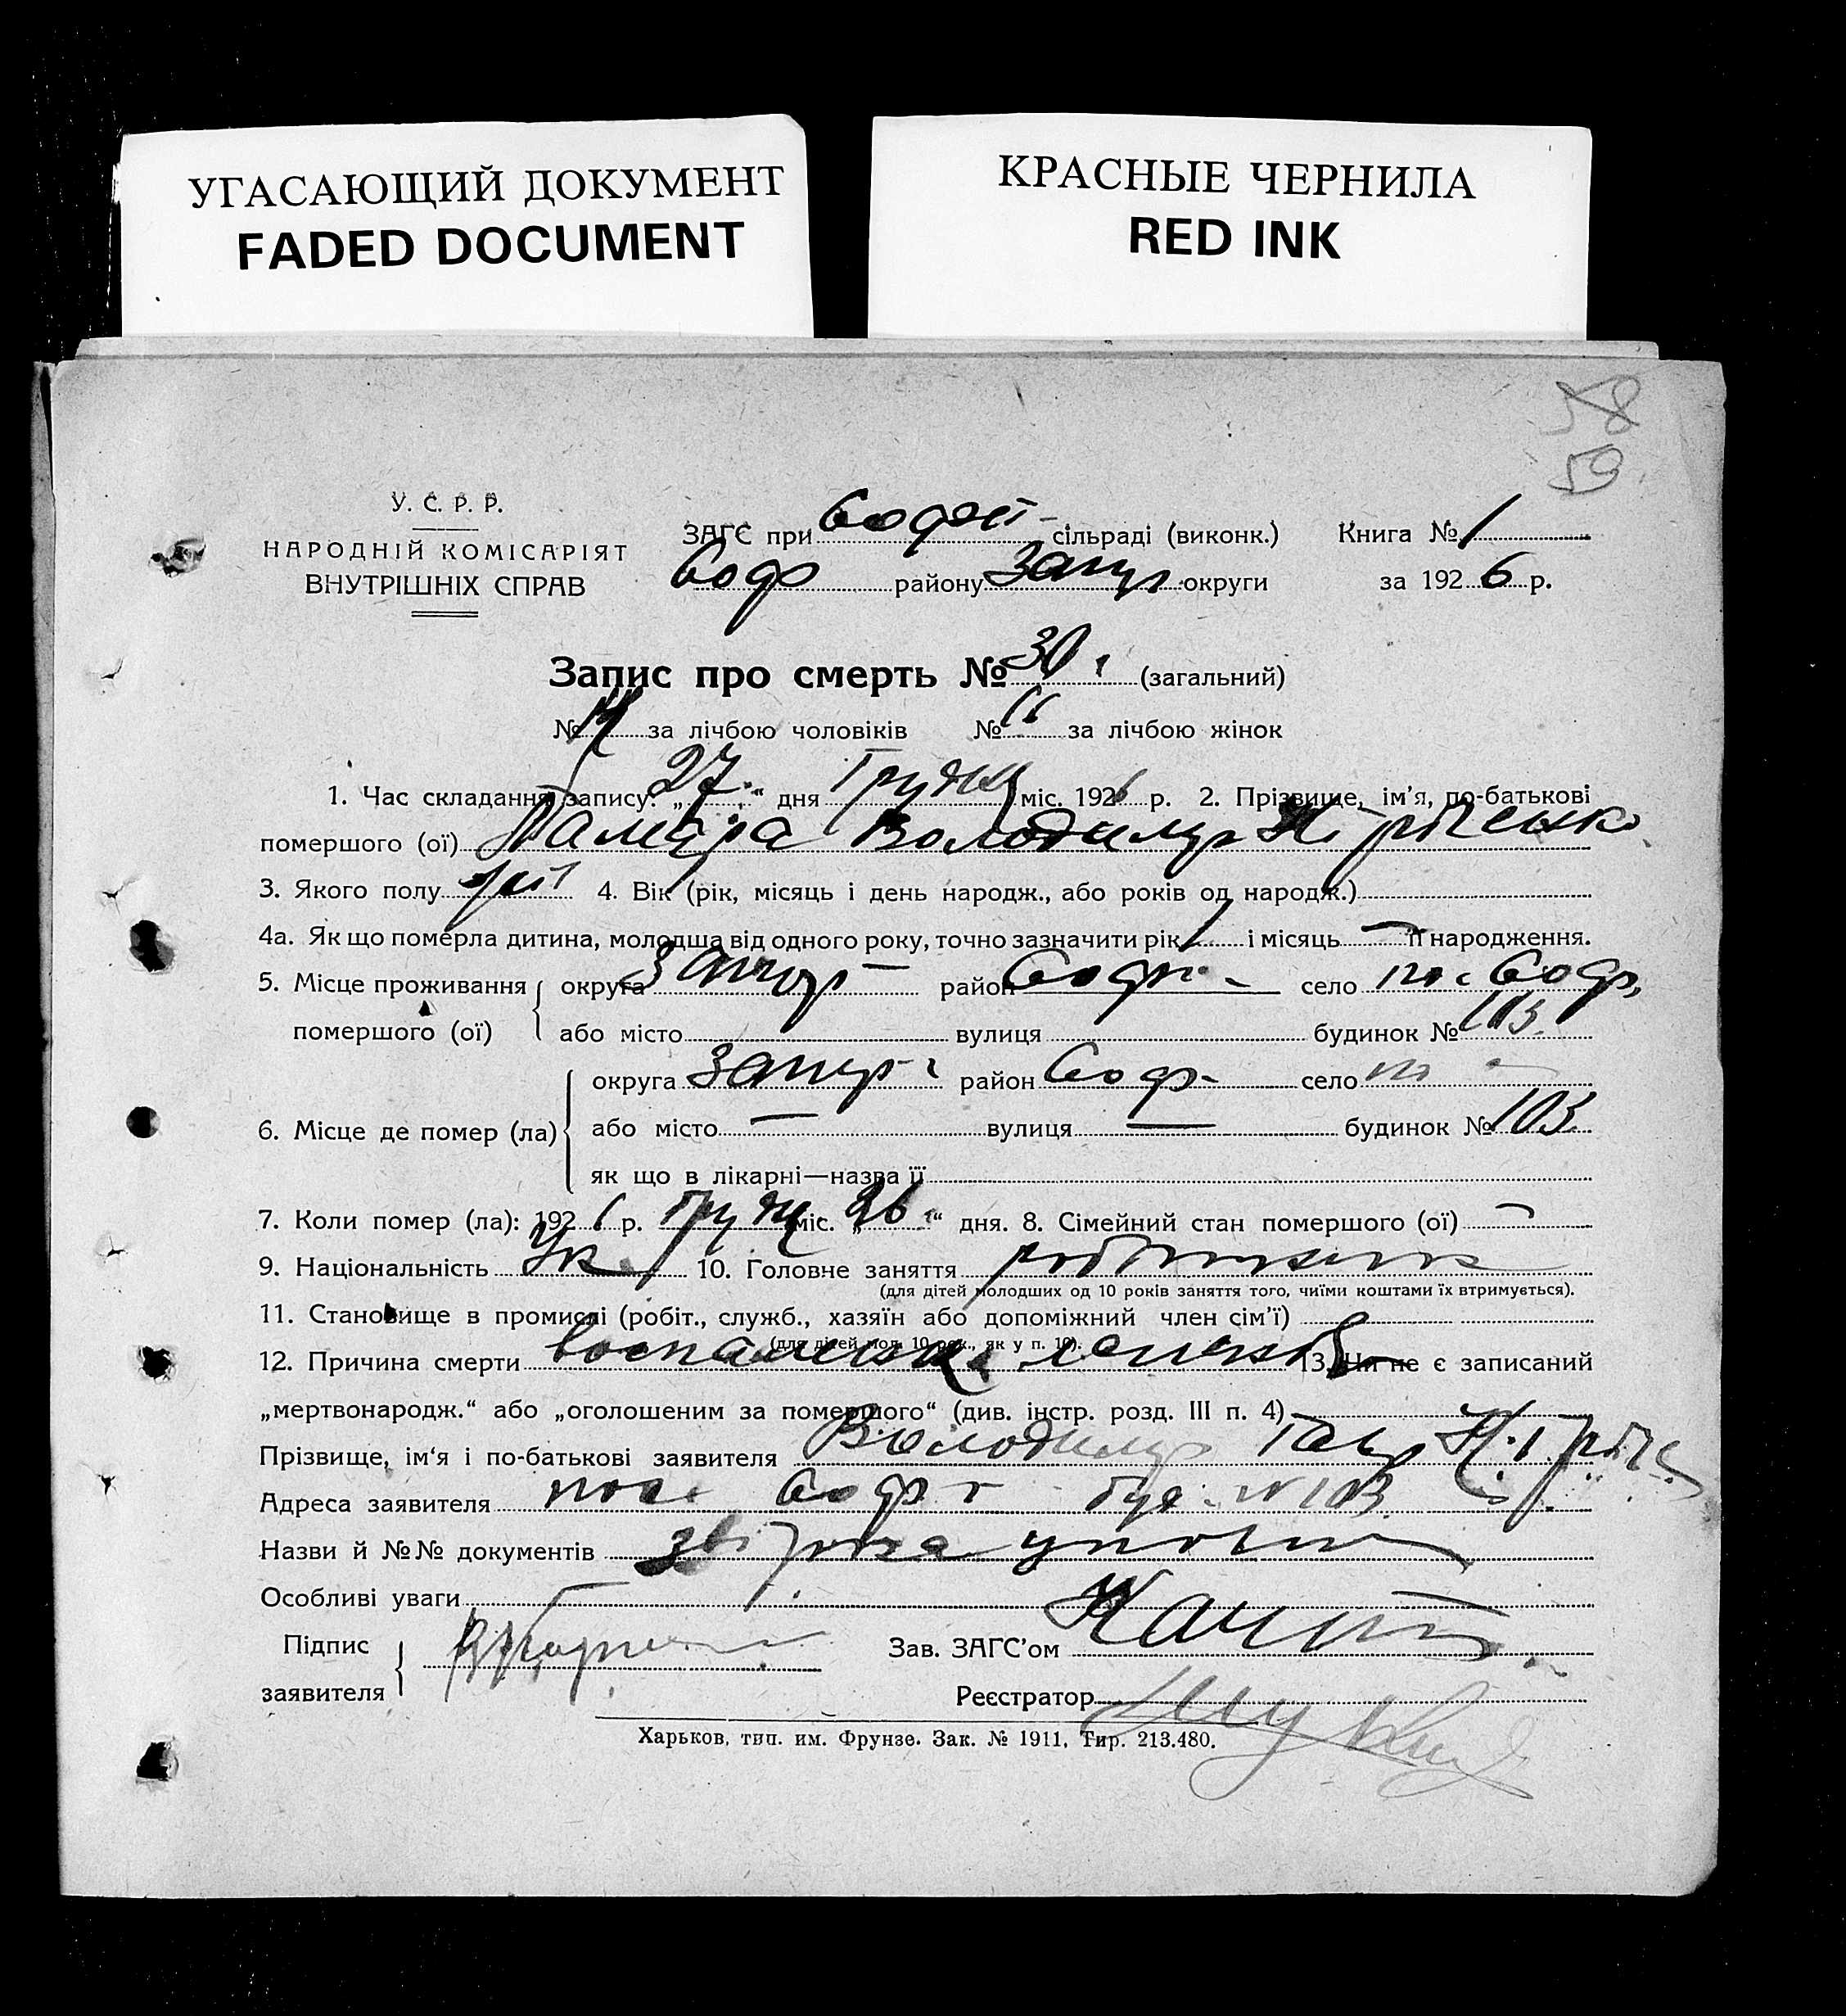 УГАСАЮЩИЙ ДОКУМЕНТ
FADED DOCUMENT
КРАСНЫЕ ЧЕРНИЛА
RED INK
58
59
У. С. Р. Р.
НАРОДНІЙ КОМІСАРІЯТ
ВНУТРІШНІХ СПРАВ
ЗАГС при сільраді (виконк.)
Соф району Запор округи
Книга № 1
за 1926 р.
Запис про смерть № 30 (загальний)
№ за лічбою чоловіків № за лічбою жінок
1. Час складання запису: „27“ дня Грудня міс. 1926 р. 2. Прізвище, ім'я, по-батькові
помершого (ої) Тамара Володимир
3. Якого полу 4. Вік (рік, місяць і день народж., або років од народж.)
4а. Як що померла дитина, молодша від одного року, точно зазначити рік 1 і місяць — її народження.
5. Місце проживання помершого (ої) округа Запор район Софі село пос Соф
або місто вулиця будинок № 103
6. Місце де помер (ла) округа Запор район Соф село
або місто — вулиця — будинок № 103
як що в лікарні—назва її
7. Коли помер (ла): 1926 р. Грудн міс. „26“ дня. 8. Сімейний стан помершого (ої) —
9. Національність Ук 10. Головне заняття робітник
(для дітей молодших од 10 років заняття того, чиїми коштами їх втримується).
11. Становище в промислі (робіт., служб., хазяїн або допоміжний член сім'ї)
(для дітей мол. 10 рок., як у п. 10).
12. Причина смерти воспаление легких 13. Чи не є записаний
„мертвонародж.“ або „оголошеним за помершого“ (див. інстр. розд. III п. 4)
Прізвище, ім'я і по-батькові заявителя Володимир
Адреса заявителя пос Соф буд. № 103
Назви й №№ документів
Особливі уваги
Підпис заявителя
Зав. ЗАГС'ом
Реєстратор
Харьков, тип. им. Фрунзе. Зак. № 1911. Тир. 213.480.